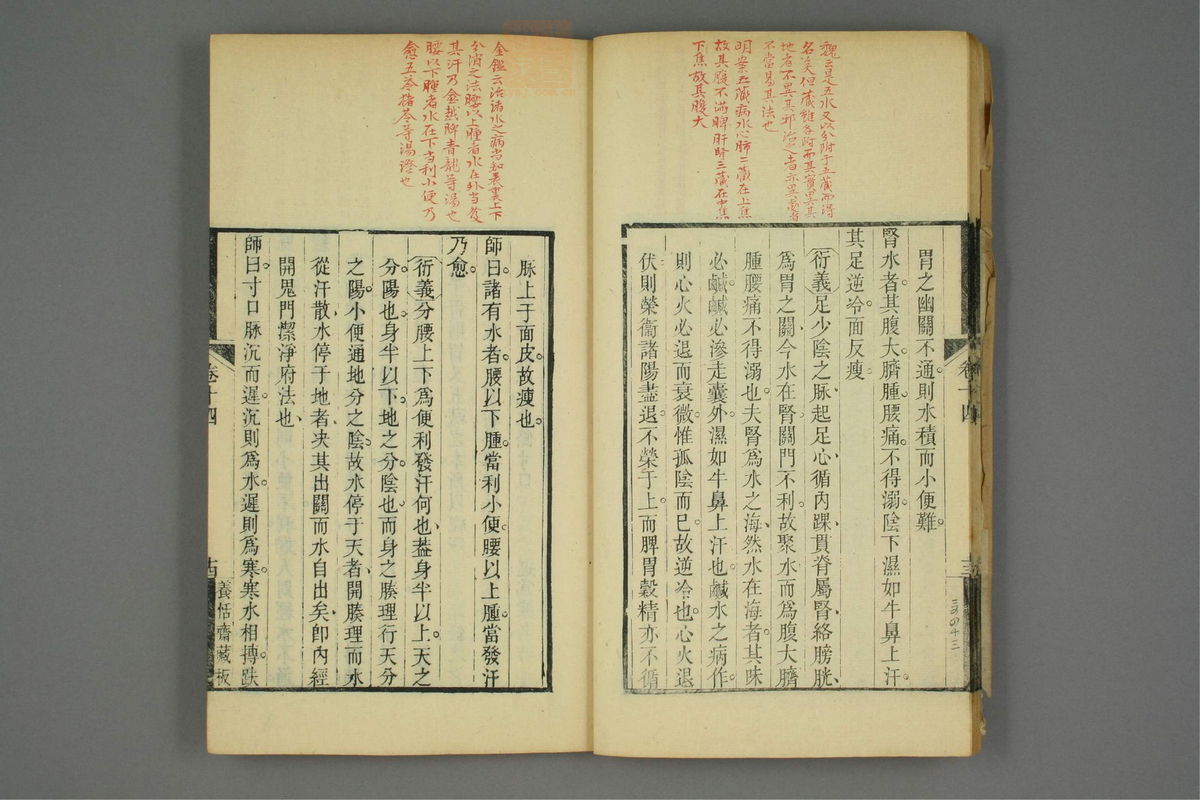 魏云是五水又以分附于五藏而得
名矣但藏雖各附而其實異其
地者不異其邪治之者亦異患者
不當易其法也
明案五藏病水心肺二藏在上焦
故其腹不滿脾肝腎三藏在中焦
下焦故其腹大
胃之幽關不通則水積而小便難
腎水者其腹大臍腫腰痛不得溺陰下濕如牛鼻上汗
其足逆冷面反瘦
衍義足少陰之脉起足心循內踝貫脊屬腎絡膀胱
爲胃之關今水在腎關門不利故聚水而爲腹大臍
腫腰痛不得溺也夫腎爲水之海然水在海者其味
必鹹鹹必滲走囊外濕如牛鼻上汗也鹹水之病作
則心火必退而衰微惟孤陰而已故逆冷也心火退
伏則榮衞諸陽盡退不榮于上而脾胃穀精亦不循
卷十四
十三
金鑑云治諸水之病當知表裏上下
分消之法腰以上腫者水在外當發
其汗乃愈越脾青龍等湯也
腰以下腫者水在下當利小便乃
愈五苓猪苓等湯證也
脉上于面皮故瘦也
師曰諸有水者腰以下腫當利小便腰以上腫當發汗
乃愈
衍義分腰上下爲便利發汗何也葢身半以上天之
分陽也身半以下地之分陰也而身之腠理行天分
之陽小便通地分之陰故水停于天者開腠理而水
從汗散水停于地者决其出關而水自出矣卽內經
開鬼門潔淨府法也
師曰寸口脉沉而遲沉則爲水遲則爲寒寒水相摶趺
卷十四
十四
養恬齋藏板